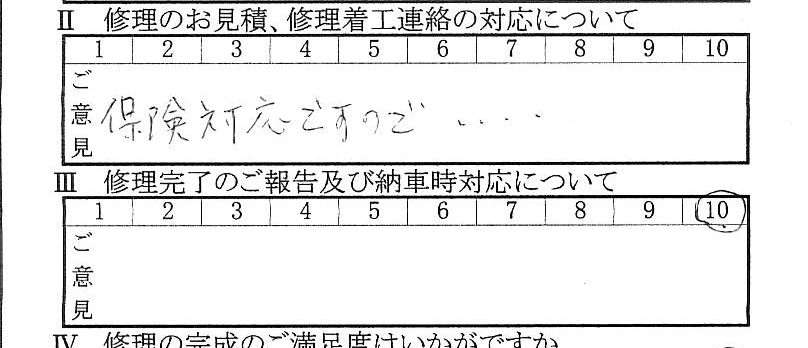 Ⅱ 修理のお見積、修理着工連絡の対応について
1 2 3 4 5 6 7 8 9 10
ご意見
保険対応ですので ‥‥
Ⅲ 修理完了のご報告及び納車時対応について
1 2 3 4 5 6 7 8 9 10
ご意見
Ⅳ 修理の完成のご満足度はいかがですか